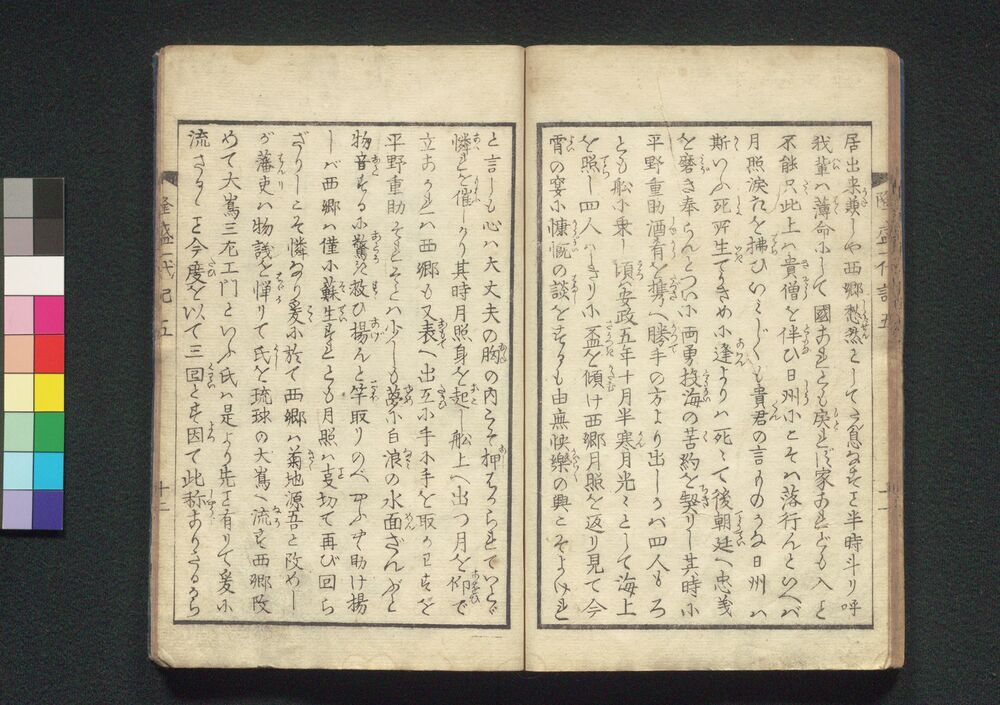 居出来兼しや西郷愁然として大息なすこと半時斗り呼
我輩ハ薄命にして國あれども戻られず家あれども入こと
不能只此上ハ貴僧を伴ひ日州にこそハ落行んといへバ
月照涙を拂ひいミじくも貴君の言ものかな日州ハ
斯いふ死所生てうきめに逢よりハ死して後朝廷へ忠義
を磨き奉らんとついに両勇投海の苦約を契りし其時に
平野重助酒肴を携へ勝手の方より出しかバ四人もろ
とも船に乗し頃ハ安政五年十月半寒月光々として海上
を照し四人ハしきりに盃を傾け西郷月照を返り見て今
宵の宴に慷慨の談をするも由無快樂の興こそよけれ
と言しも心ハ大丈夫の胸の内こそ押はかられていとゞ
憐れを催しけり其時月照身を起し船上へ出つ月を仰で
立あがれハ西郷も又表へ出互に手に手を取かはすを
平野重助それぞとハ少しも夢に白浪の水面ざんぶと
物音するに驚き救ひ揚んと竿取りのべやふやく助け揚
しバ西郷ハ僅に蘇生すれども月照ハ支切て再び回ら
ざりしこそ憐なり爰に於て西郷ハ菊地源吾と改めし
が藩吏ハ物議を憚りて氏を琉球の大嶌へ流す西郷改
めて大嶌三右エ門といふ氏ハ是より先に有りて爰に
流さるゝこと今度を以て三回とす因て此称ありさるから
隆盛一代記 五
隆盛一代記 五